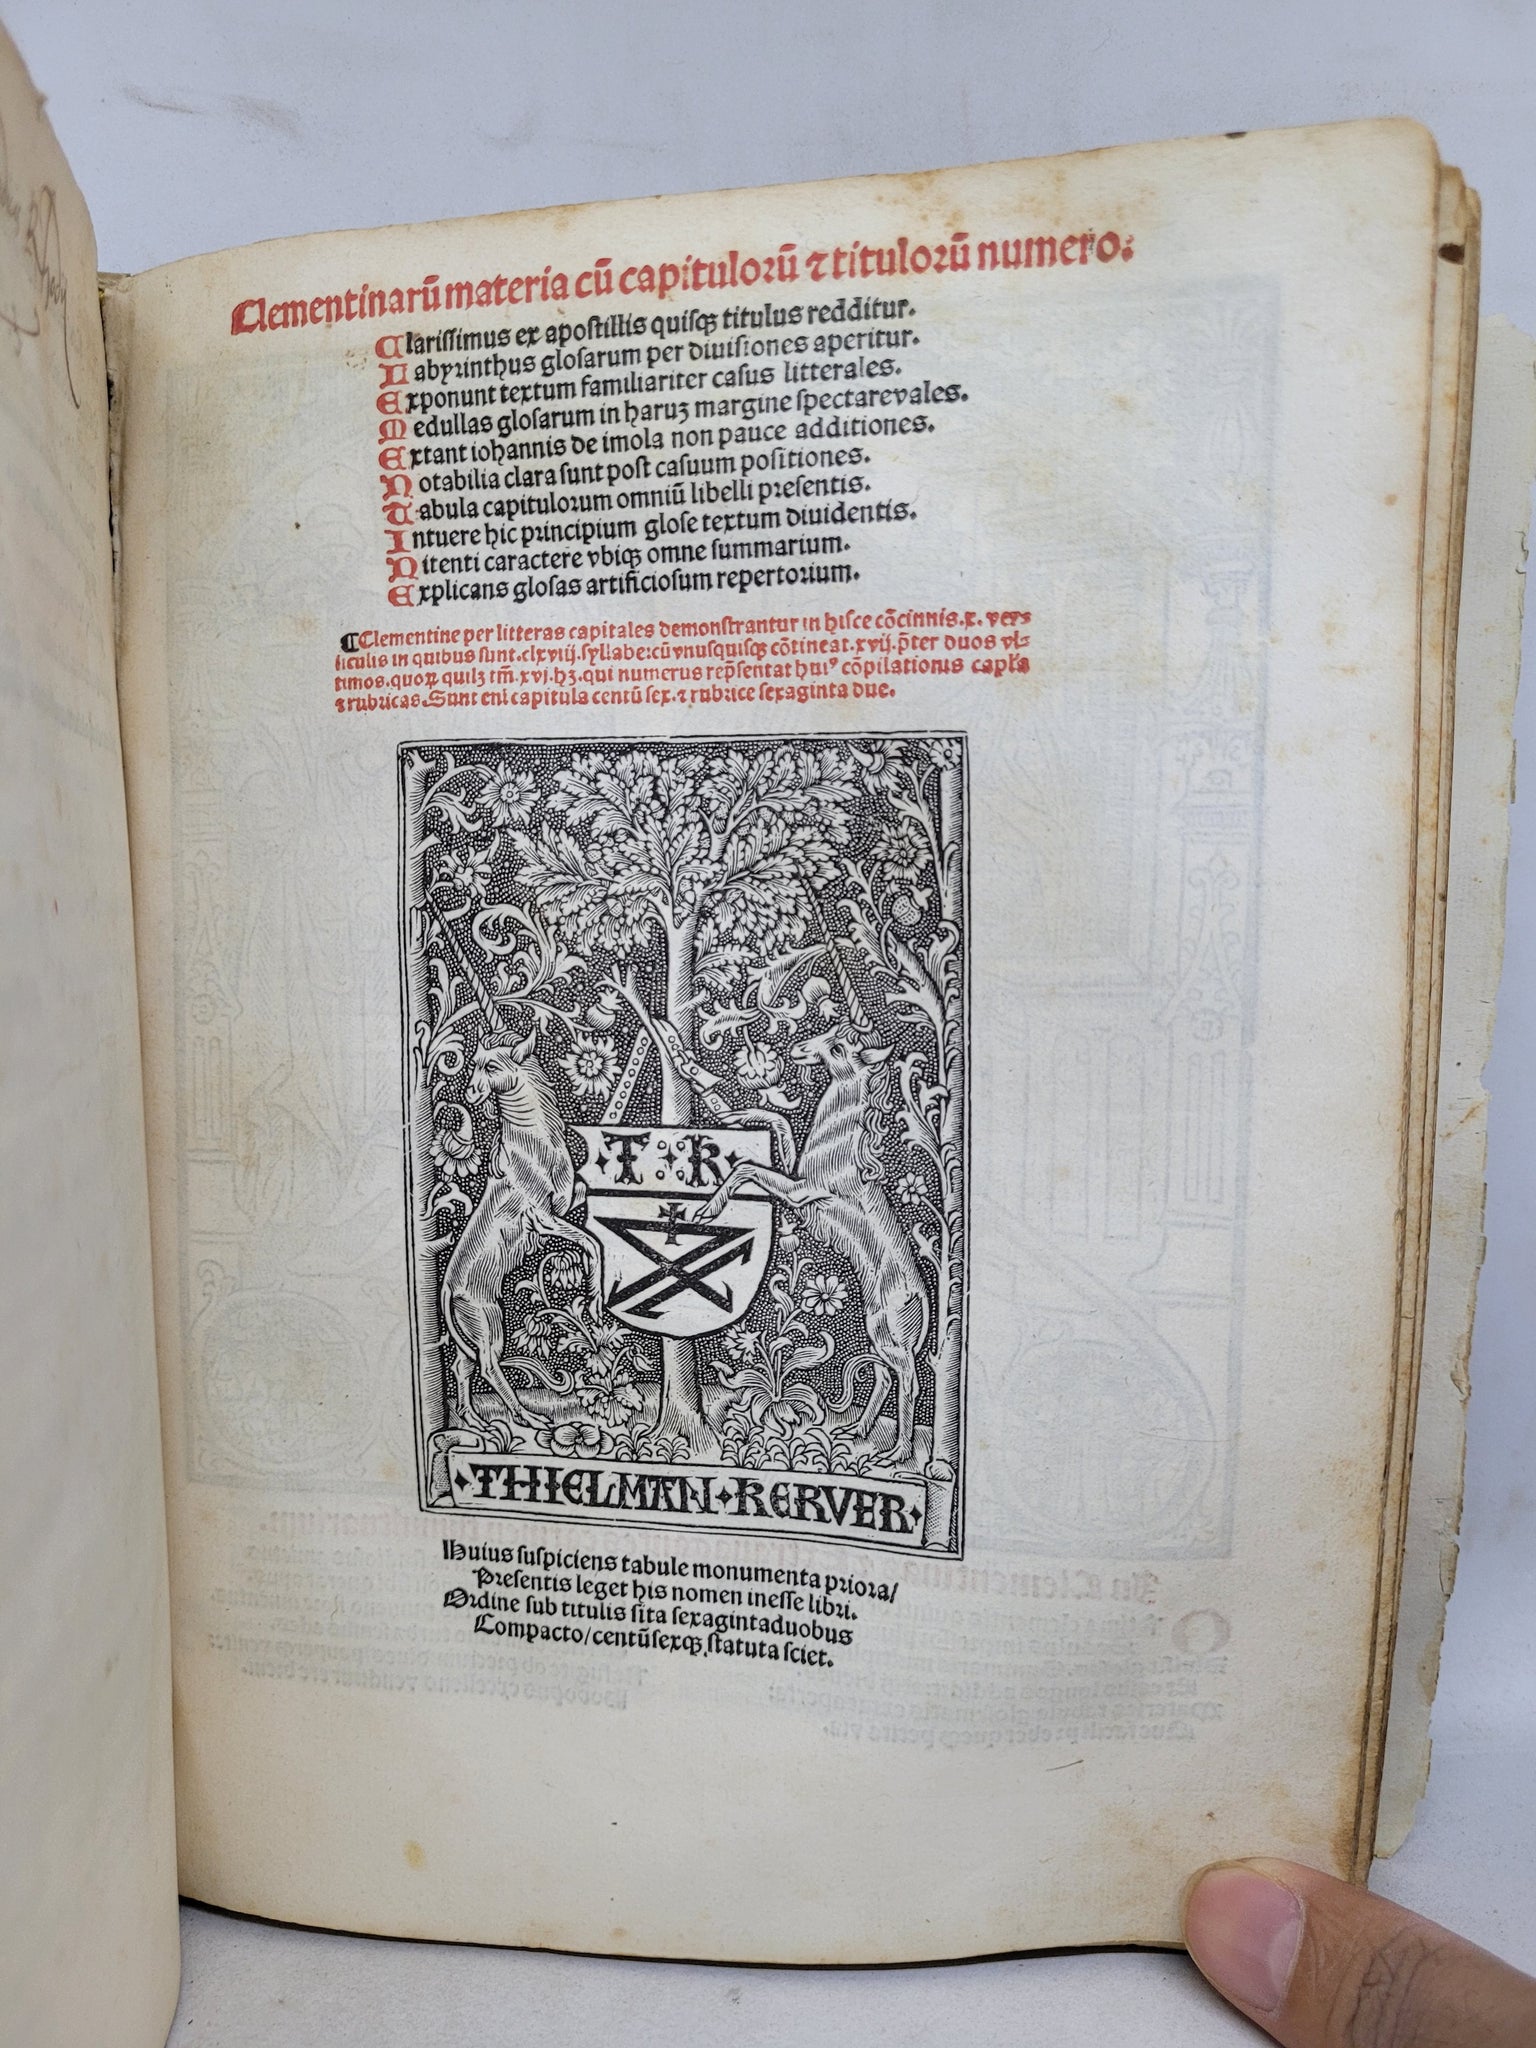 Clementinarū materia cū capitulorū ⁊ titulorū numero.
Clarissimus ex apostillis quisqꝫ titulus redditur.
Labyrinthus glosarum per diuisiones aperitur.
Exponunt textum familiariter casus litterales.
Medullas glosarum in haruꝫ margine spectare vales.
Extant iohannis de imola non pauce additiones.
Notabilia clara sunt post casuum positiones.
Tabula capitulorum omniū libelli presentis.
Intuere hic principium glose textum diuidentis.
Nitenti caractere vbiqꝫ omne summarium.
Explicans glosas artificiosum repertorium.
¶Clementine per litteras capitales demonstrantur in hisce cōcinnis.x. vers
siculis in quibus sunt.clxviij.syllabe:cū vnusquisqꝫ cōtineat.xvij.p̄ter duos vl-
timos.quoꝝ quilꝫ tm̄.xvj.hꝫ.qui numerus rep̄sentat huiꝰ cōpilationis capl̄a
⁊ rubricas.Sunt eni capitula centū sex.⁊ rubrice sexaginta due.
T R
THIELMAN KERVER
Huius suspiciens tabule monumenta priora/
Presentis leget his nomen inesse libri.
Ordine sub titulis sita sexagintaduobus
Compacto/centūsexqꝫ statuta sciet.